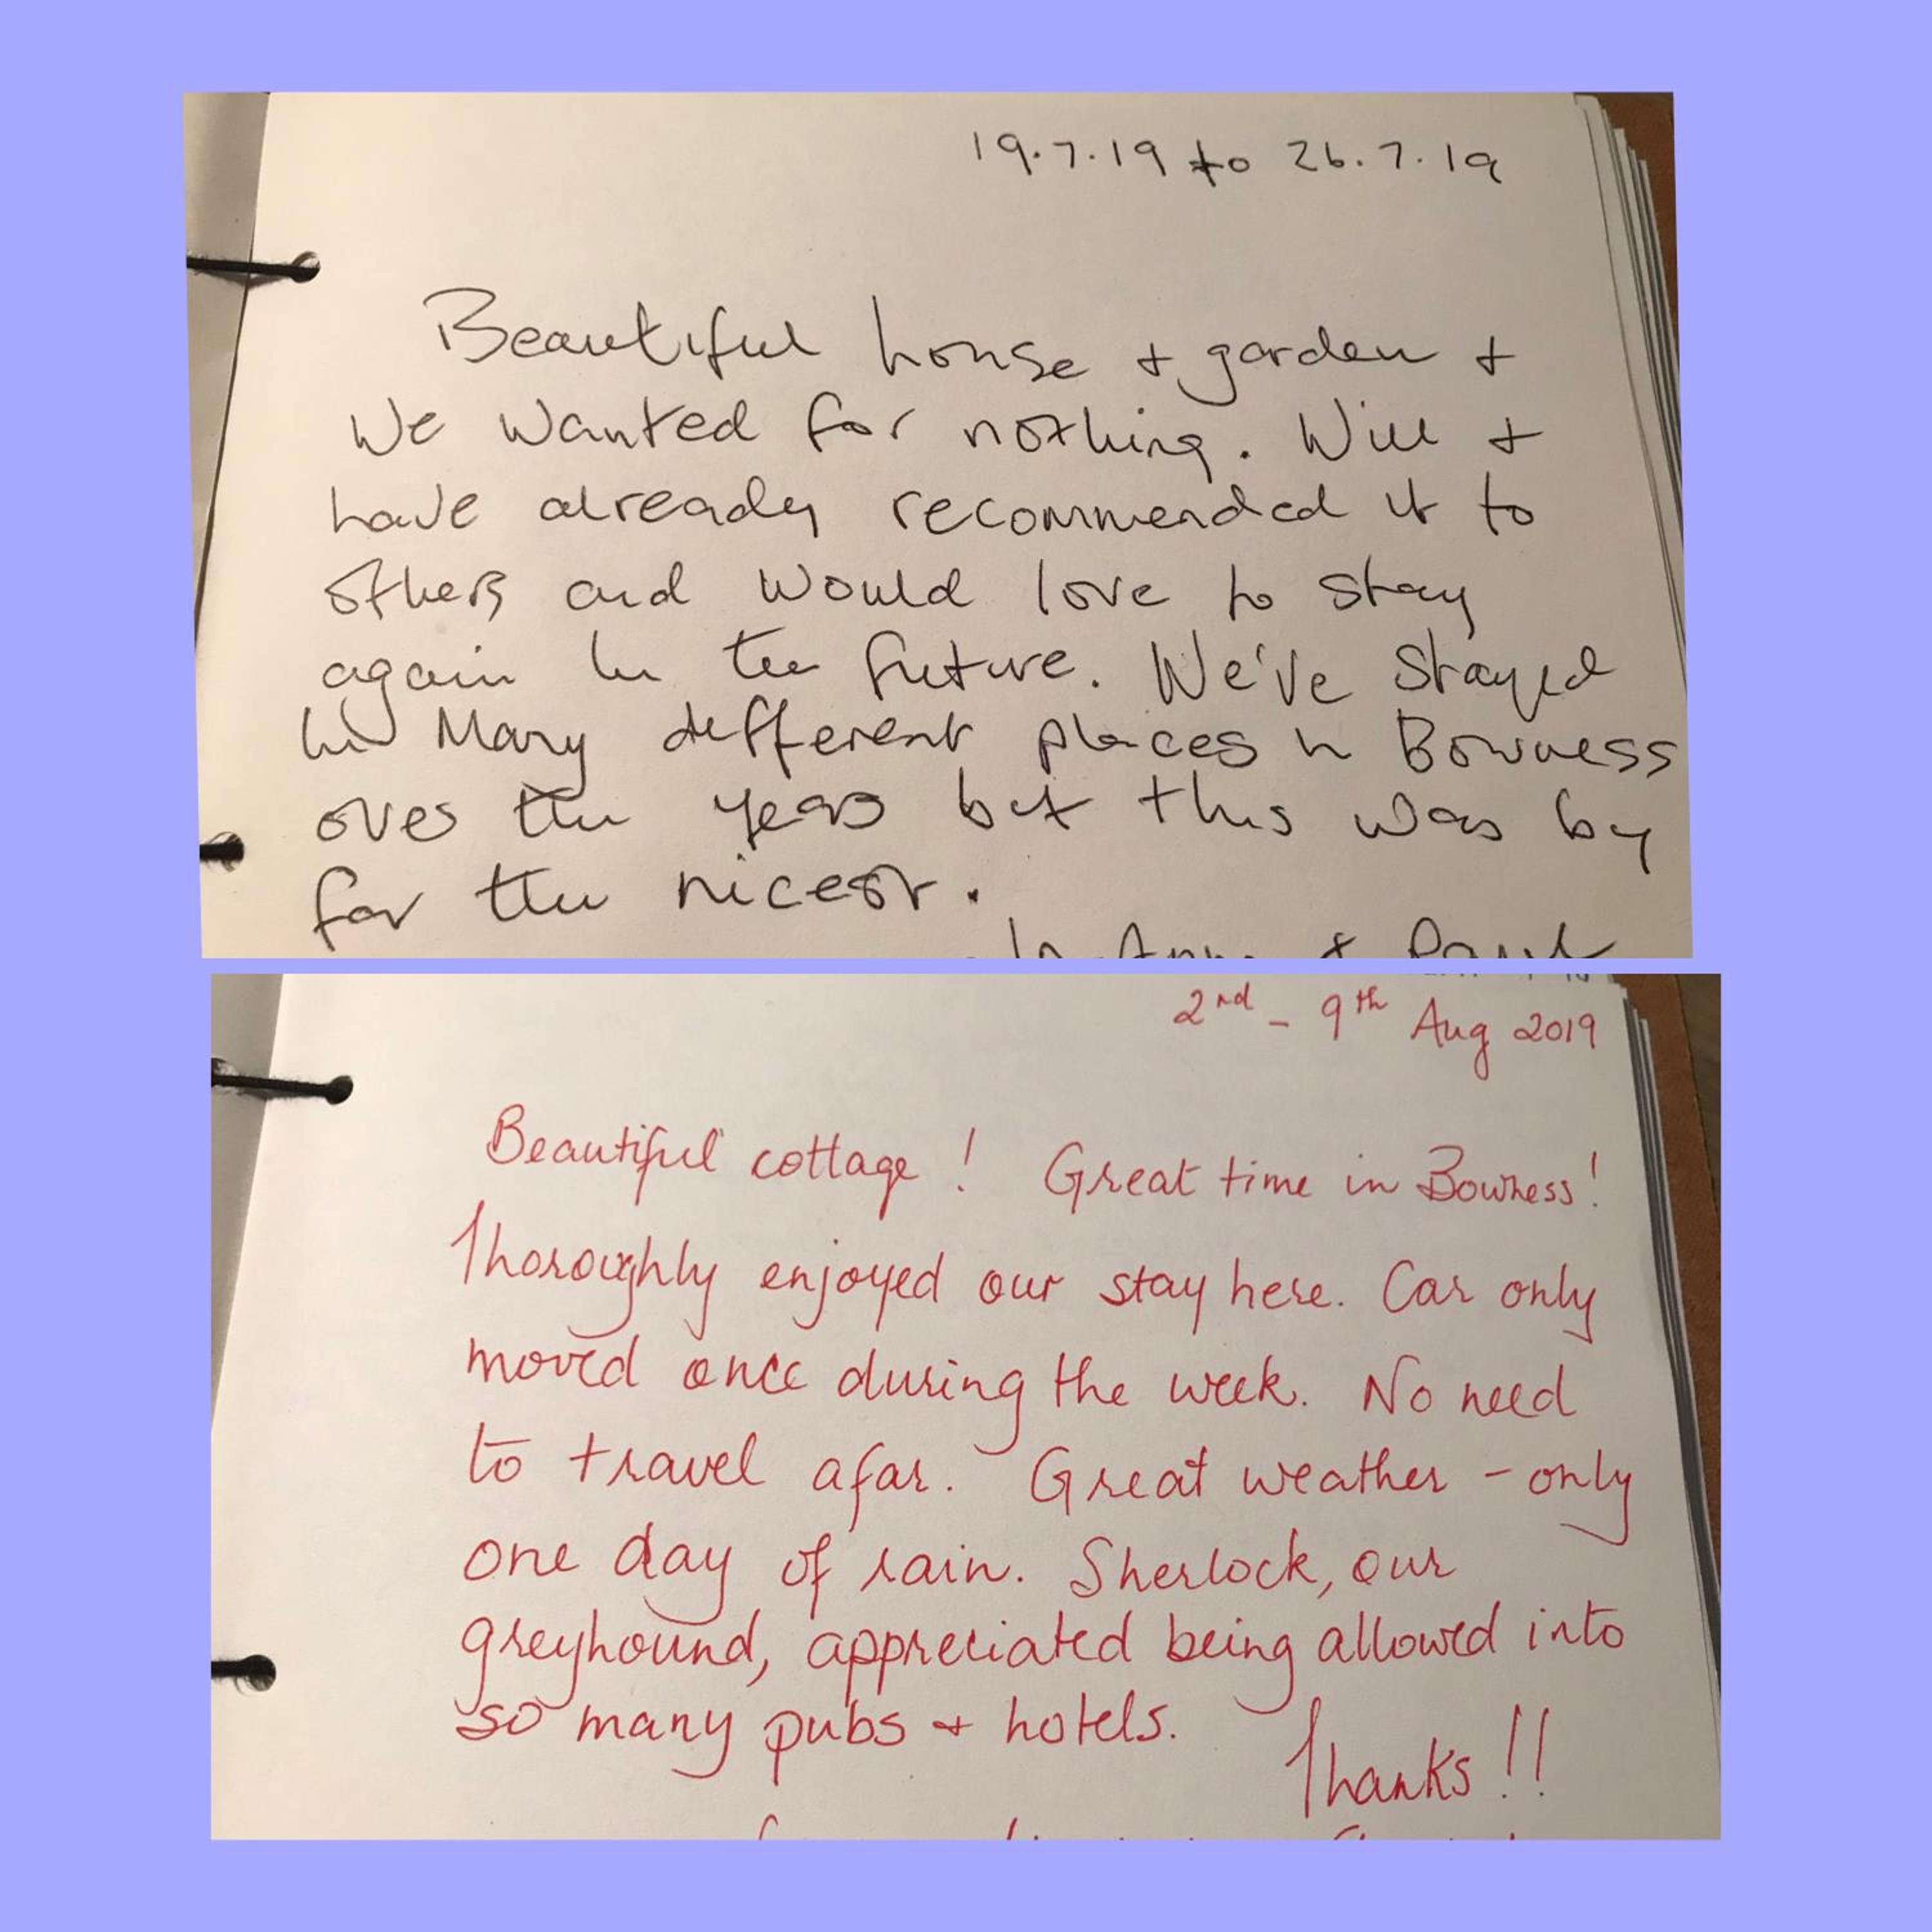 19.7.19 to 26.7.19
Beautiful house + garden +
We wanted for nothing. Will +
have already recommended it to
others and would love to stay
again in the future. We've stayed
in Many different places in Bowness
over the years but this was by
far the nicest.
& Paul
2nd - 9th Aug 2019
Beautiful cottage! Great time in Bowness!
Thoroughly enjoyed our stay here. Car only
moved once during the week. No need
to travel afar. Great weather - only
one day of rain. Sherlock, our
greyhound, appreciated being allowed into
so many pubs + hotels.
Thanks!!